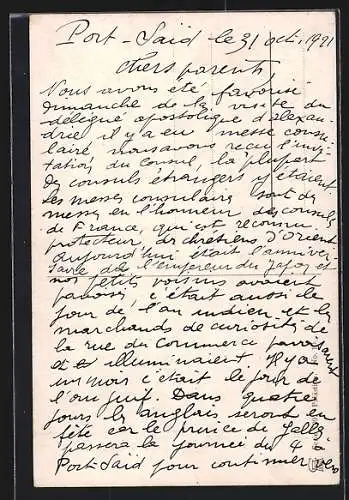 Port-Saïd le 31 oct. 1921
chers parents
Nous avons été favorisé
Dimanche de la visite du
délégué apostolique d'alexan-
drie il y a eu messe consu-
laire nous avons reçu l'invi-
tation du Consul, la plupart
des consuls étrangers y étaient
les messes consulaires sont des
messes en l'honneur des consuls
de France, qui est reconnu
protecteur des chrétiens d'Orient
aujourd'hui était l'anniver-
saire de l'empereur du Japon et
nos petits voisins avaient
pavoisé, c'était aussi le
jour de l'an indien et les
marchands de curiosités de
la rue du Commerce pavoisaient
et illuminaient il y a
un mois c'était le jour de
l'an juif. Dans quatre
jours les anglais seront en
fête car le prince de Galles
passera la journée du 4
Port-Saïd pour continuer vers